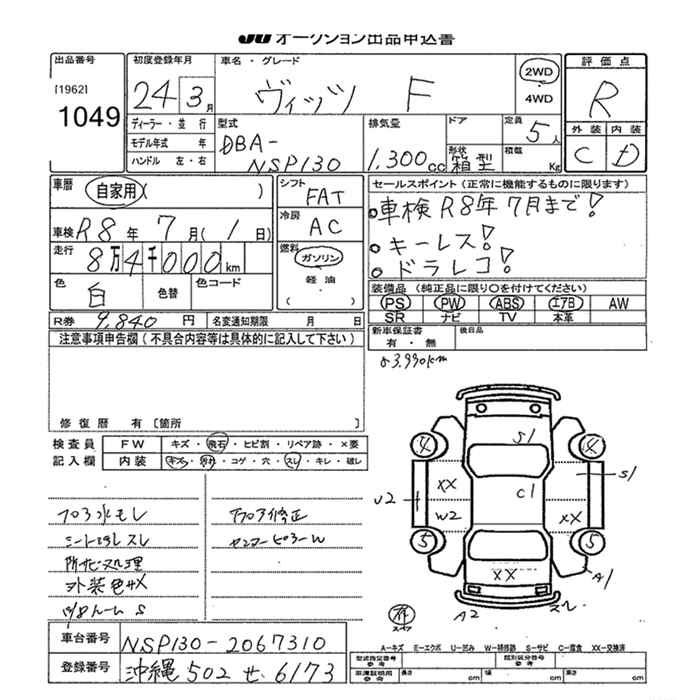 JU オークション出品申込書
出品番号
[1962]
1049
初度登録年月
24 3月
車名・グレード
ヴィッツ F
2WD
4WD
評価点
R
外装 内装
C D
ディーラー・並行
モデル年式 年
ハンドル 左・右
型式
DBA-
NSP130
排気量
1,300cc
ドア
形状
箱型
定員
5人
積載
Kg
車歴
自家用( )
車検 R8年 7月(1日)
走行
8万4千000km
色
白
色替
色コード
シフト
FAT
冷房
AC
燃料
ガソリン
軽油
( )
セールスポイント(正常に機能するものに限ります)
車検R8年7月まで!
キーレス!
ドラレコ!
装備品(純正品に限り○を付けてください)
PS PW ABS エアB AW
SR ナビ TV 本革
R券 9,840円 名変通知期限 月 日
新車保証書
有・無
後日品
注意事項申告欄(不具合内容等は具体的に記入して下さい)
83,990km
修復歴 有〔箇所 〕
検査員
記入欄
FW キズ・飛石・ヒビ割・リペア跡・×要
内装 キズ・汚れ・コゲ・穴・スレ・キレ・破レ
フロア水モレ
シート汚レスレ
外装色サメ
フロア修正
センターピラーW
4 S1 4
XX C1 S1
U2 W2 XX
5 5
XX A1
A2 スレ
車台番号 NSP130-2067310
登録番号 沖縄 502 せ 6173
A-キズ E-エクボ U-凹み W-補修跡 S-サビ C-腐食 XX-交換済
型式指定番号
参考
類別区分番号
参考
車庫証明用
参考
長さ cm 幅 cm 高さ cm